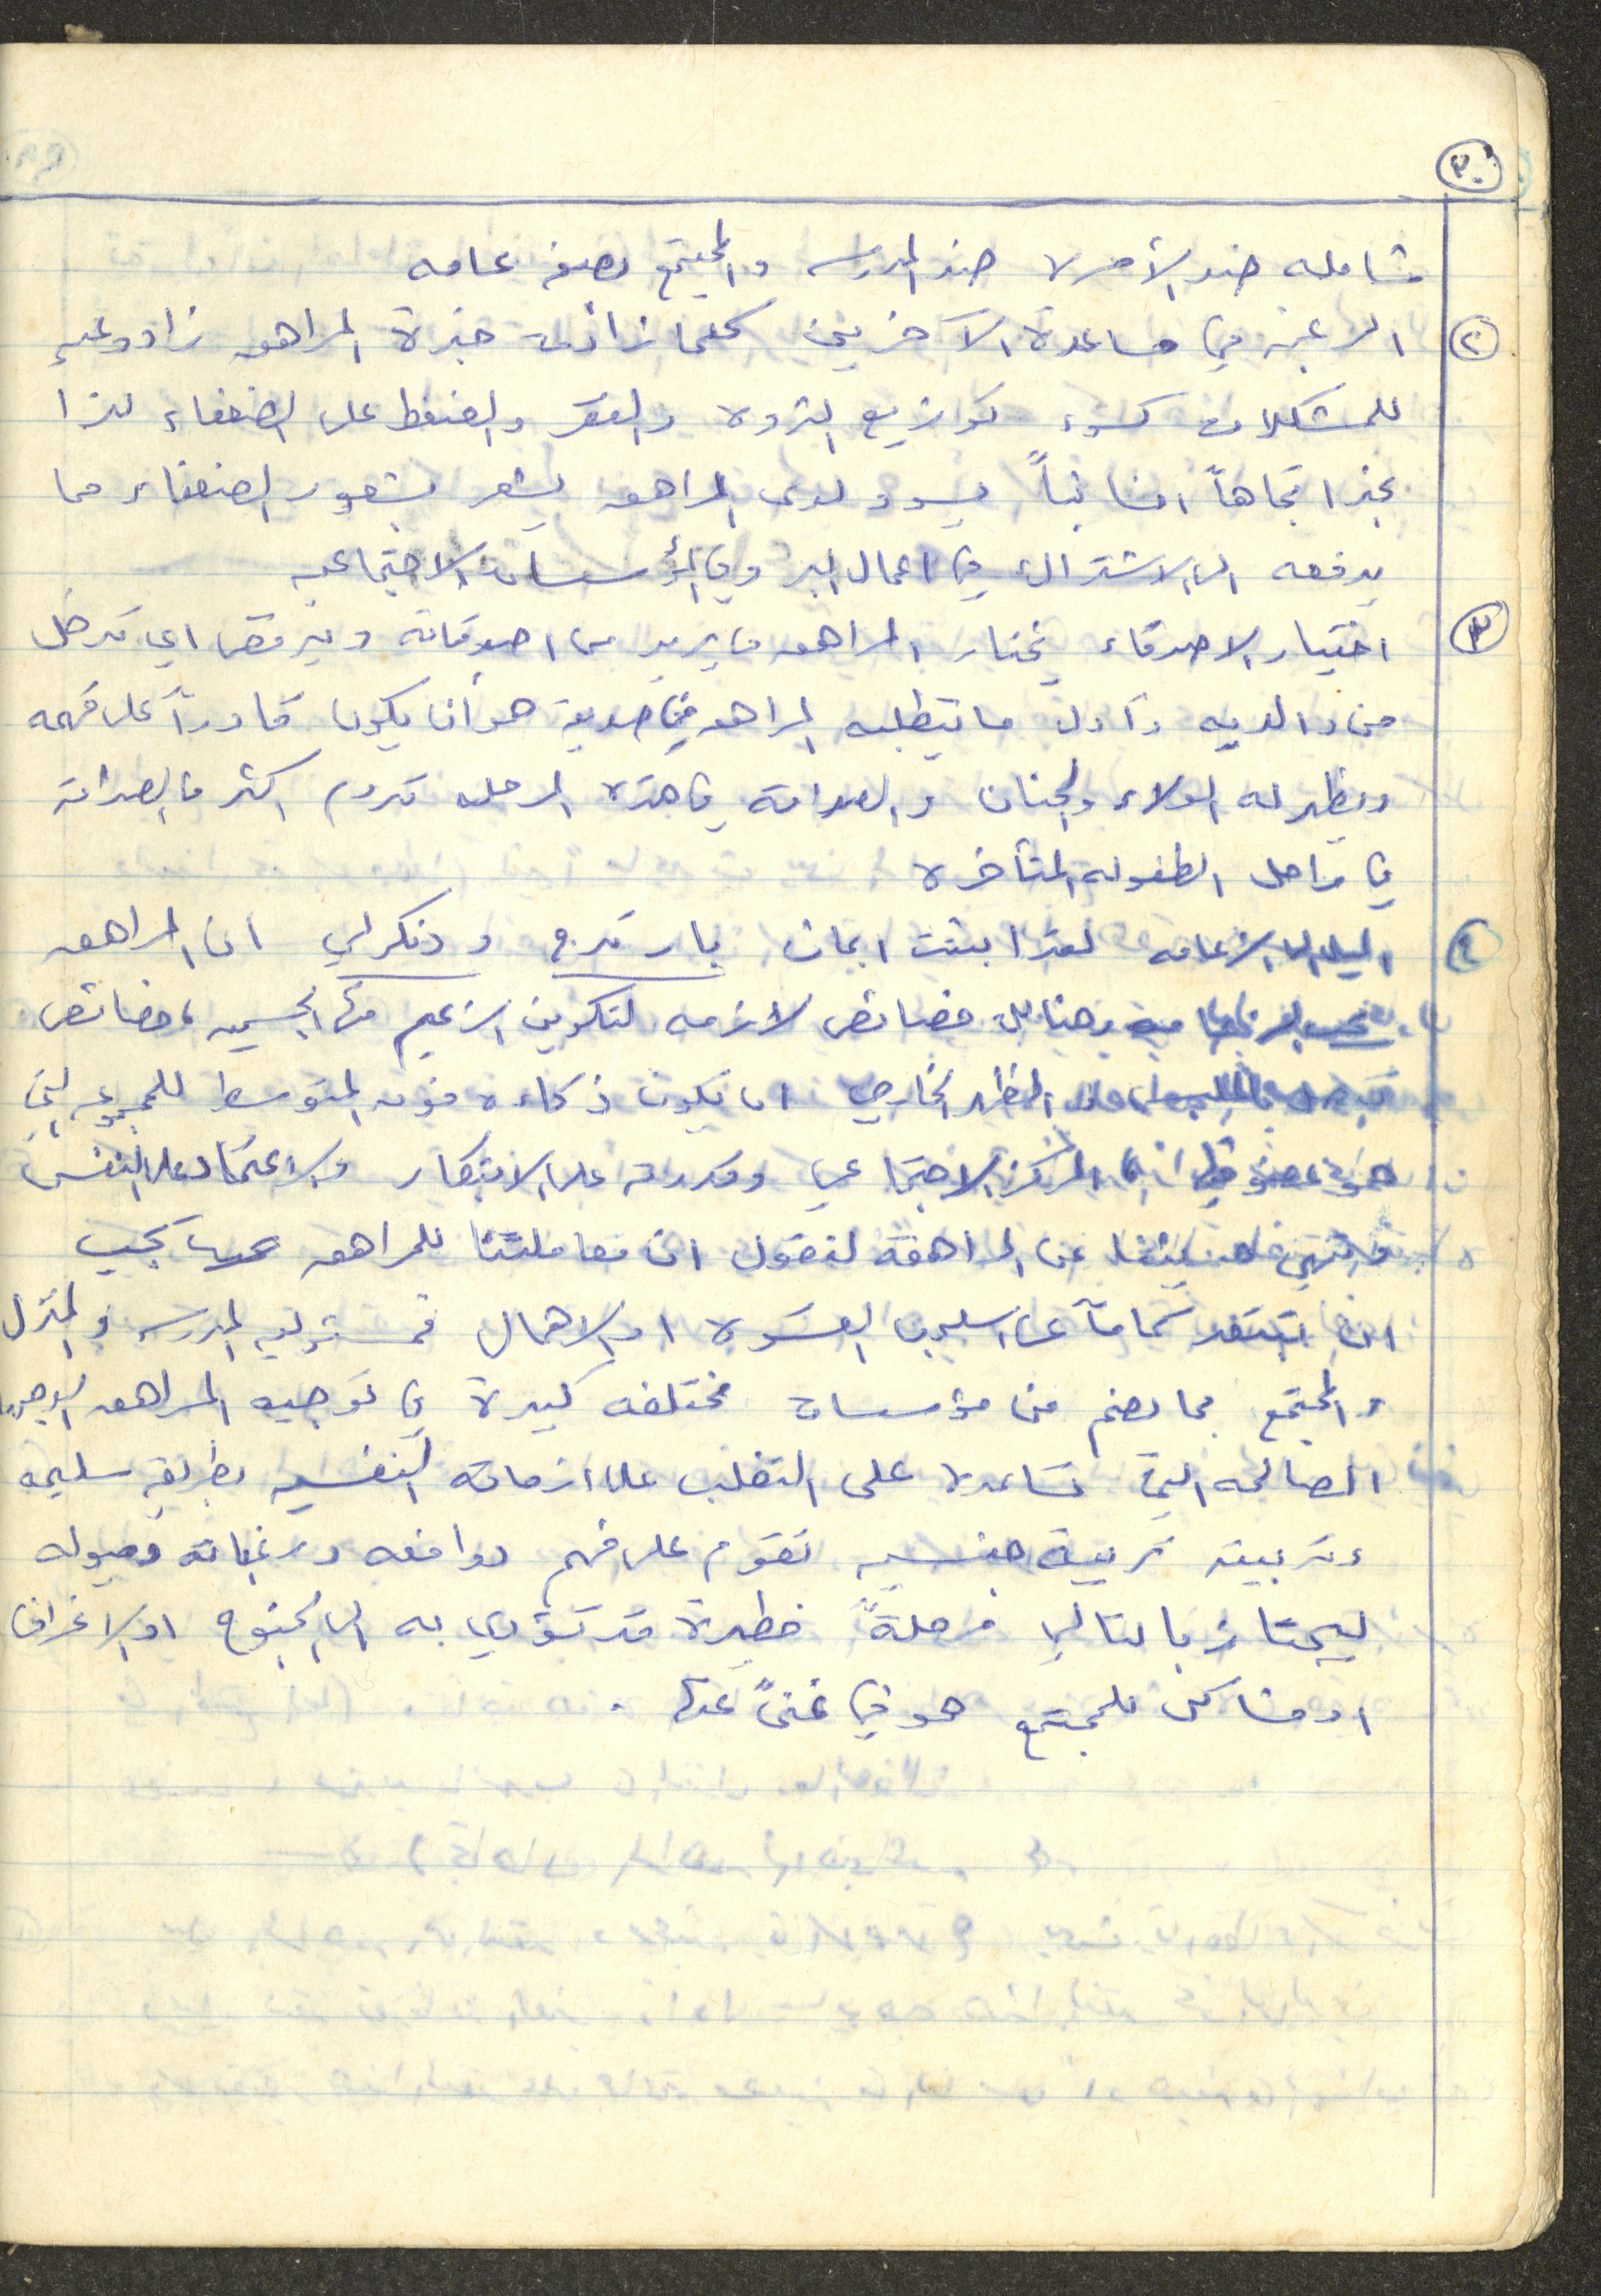 ٣٠
شامله ضد الأسره ضد المدرسه والمجتمع بصفه عامه
٢ الرغبه في مساعدة الآخرين كلما زادت خبرة المراهق زاد وعيه
للمشكلات كسوء توزيع الثروه والفقر والضغط على الضعفاء لذا
نجد اتجاهاً انسانياً يسود لدى المراهق يشعر بشعور الضعفاء مما
يدفعه الى الاشتراك في اعمال البر وفي المؤسسات الاجتماعيه
٣ اختيار الاصدقاء يختار المراهق ما يريد من اصدقائه ويرفض اي تدخل
من والديه وأول ما يتطلبه المراهق في صديقه هو أن يكون قادراً على فهمه
ويظهر له الولاء والحنان والصداقة في هذه المرحله تدوم اكثر من الصداقة
في مراحل الطفوله المتأخره
٤ الميل الى الزعامه لقد اثبتت ابحاث بار تدج و دنكرلي ان المراهق
وهنالك خصائص لازمه لتكوين الزعيم منها الجسميه، خصائص
المظهر الخارجي ان يكون ذكاءه فوق المتوسط للمجموعه التي
هو عضو فيها المركز الاجتماعي وقدرته على الابتكار والاعتماد على النفس
عن المراهقة لنقول ان معاملتنا للمراهق يجب
ان تبتعد تماماً عن اسلوب القسوه او الاهمال فمسؤوليه المدرسه والمنزل
والمجتمع بما يضم من مؤسسات مختلفه كبيرة في توجيه المراهق
الصالحه التي تساعده على التغلب على ازماته النفسيه بطريقه سليمه
وتربيته تربيه جنسيه تقوم على فهم دوافعه ورغباته وميوله
ليجتاز بالتالي مرحلةً خطيرة قد تؤدي به الى الجنوح او الانحراف
او مشاكل للمجتمع هو في غنىً عنها.